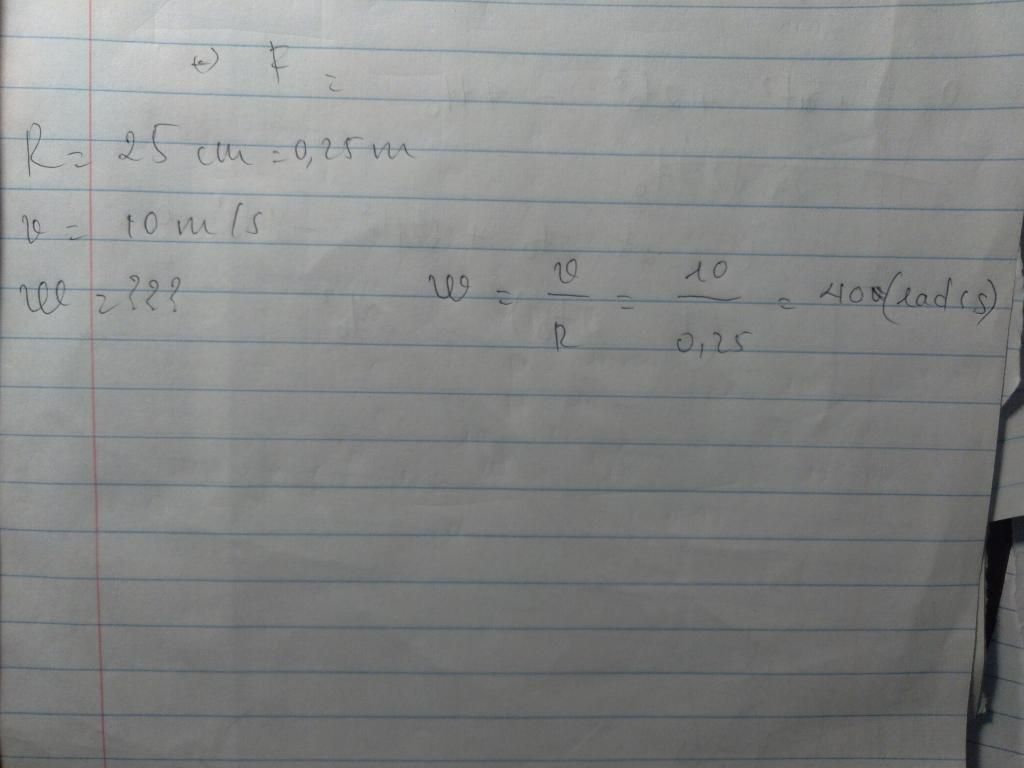 =) F =
R = 25 cm = 0,25 m
v = 10 m/s
ω = ??? ω = v/R = 10/0,25 = 40 (rad/s)